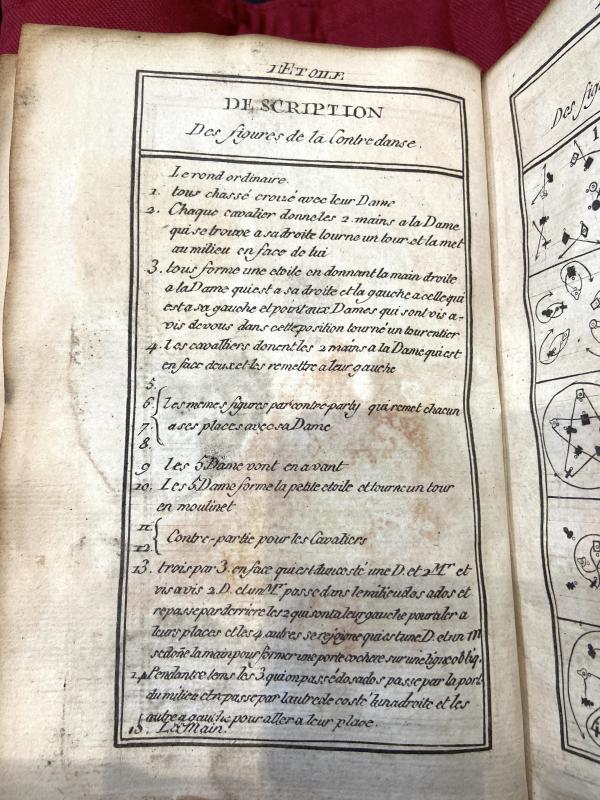 l'ETOILE
DESCRIPTION
Des figures de la Contredanse.
Le rond ordinaire.
1. tous chassé croisé avec leur Dame
2. Chaque cavalier donne les 2. mains a la Dame
qui se trouve a sa droite tourne un tour et la met
au milieu en face de lui
3. tous forme une etoile en donnant la main droite
a la Dame qui est a sa droite et la gauche a celle qui
est a sa gauche et point aux Dames qui sont vis a-
vis de vous dans cette position tourné un tour entier
4. les cavalliers donent les 2 mains a la Dame qui est
en face deux et les remettre a leur gauche
5.
6. les memes figures par contre-party qui remet chacun
7. a ses places avec sa Dame
8.
9 les 5. Dame vont en avant
10. Les 5 Dame forme la petite etoile et tourne un tour
en moulinet
11
12. Contre-partie pour les Cavaliers
13. trois par 3. en face qui est d'un costé une D. et 2 Mr et
vis a vis 2. D. et un Mr passe dans le milieu dos a dos et
repasse par derriere les 2 qui sont a leur gauche pour aler a
leurs places et les 4 autres se rejoigne qui est une D. et un M
se doñe la main pour former une porte cochere sur une ligne obliq.
14 Pendant ce tens les 3. qui on passé dos a dos passe par la port
du milieu et passe par l'autre de costé lun a droite et les
autre a gauche pour aller a leur place.
15. La Main.